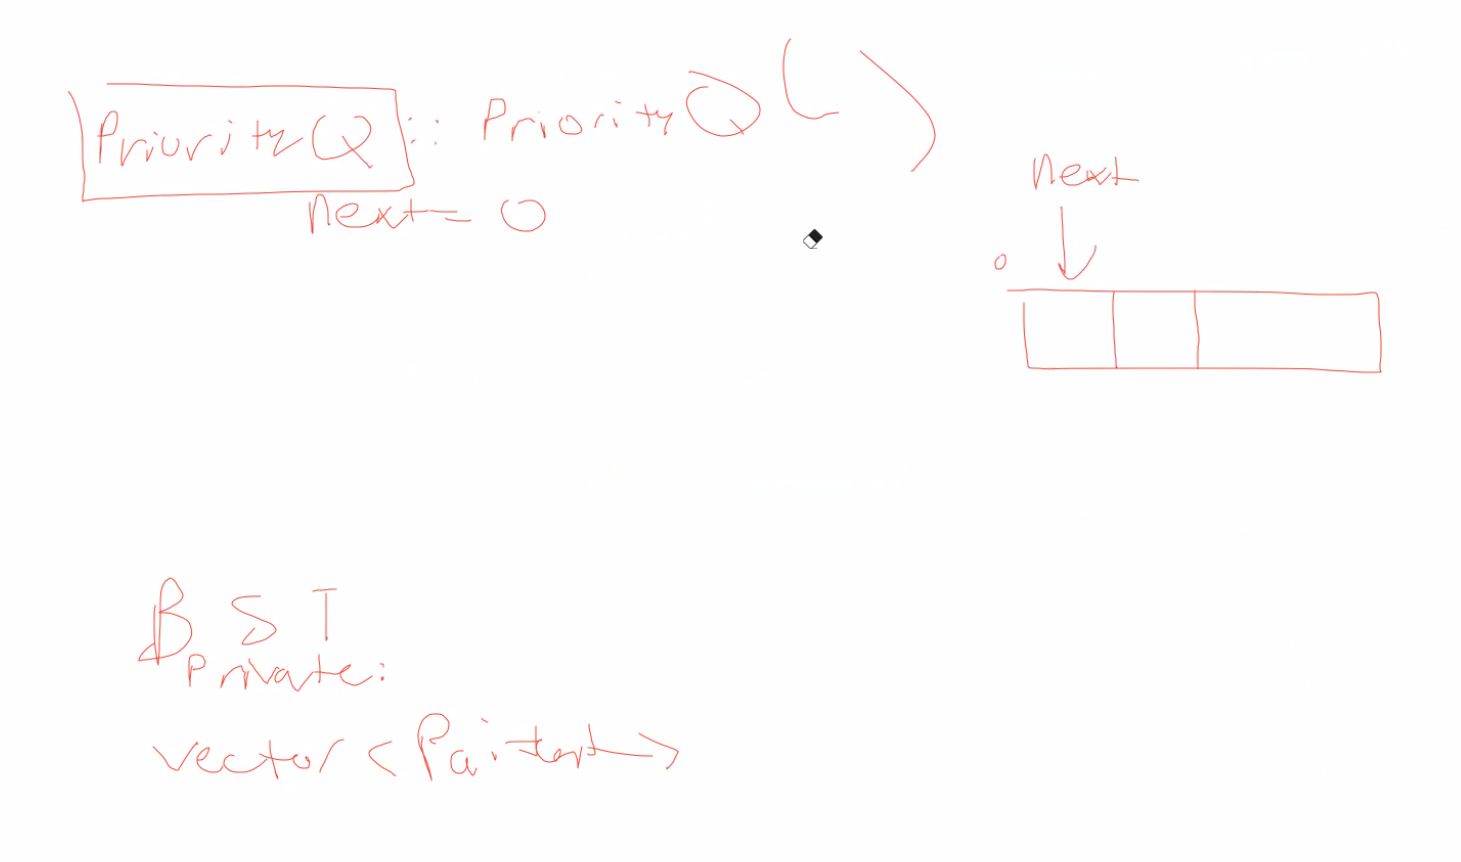 PriorityQ :: PriorityQ ( )
next = 0
next
0
BST
Private:
vector <